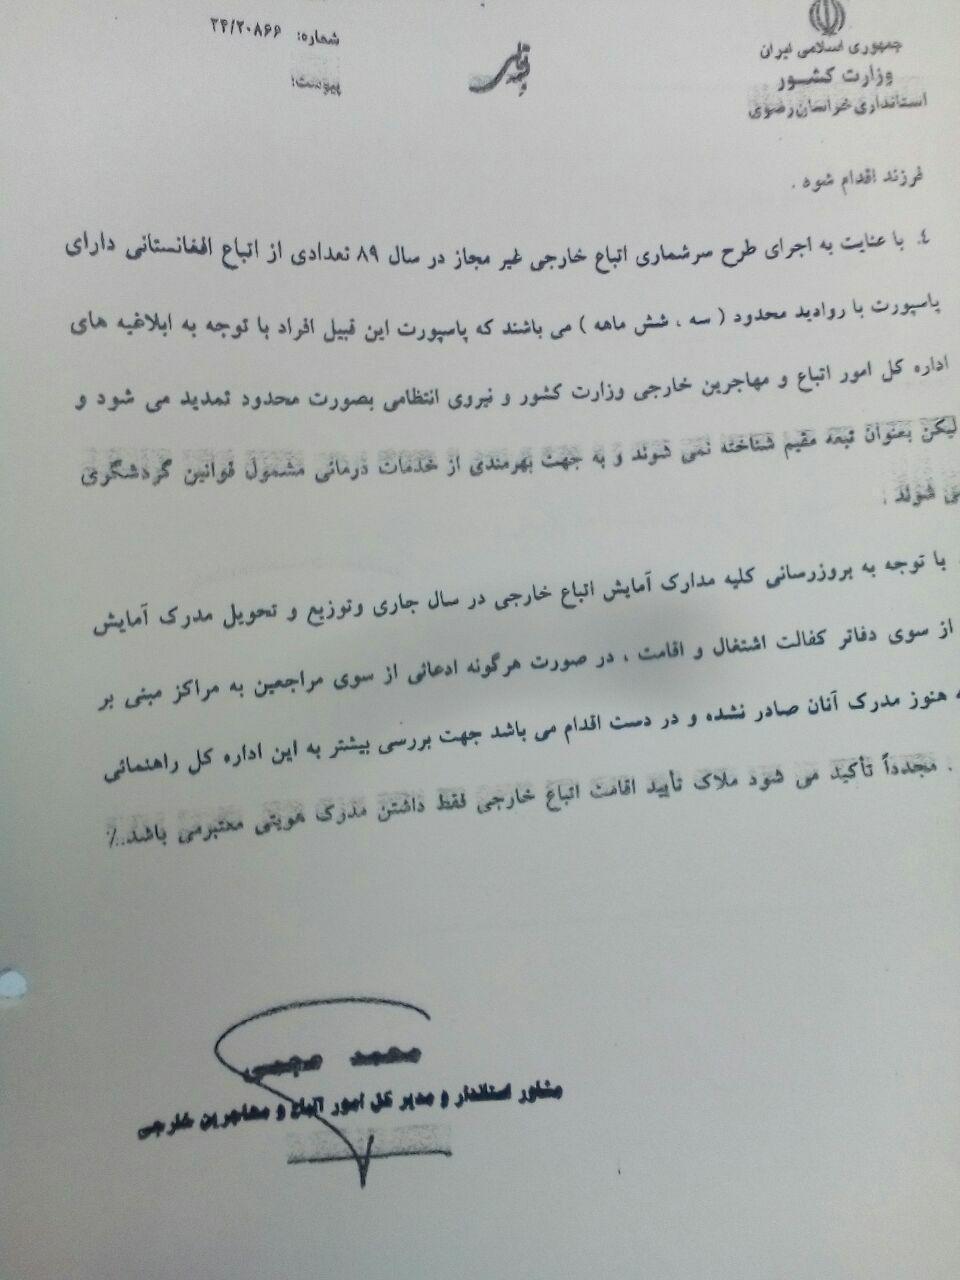 جمهوری اسلامی ایران
وزارت کشور
استانداری خراسان رضوی
شماره: ۲۴/۲۰۸۶۶
پیوست:
فرزند اقدام شود .
٤. با عنایت به اجرای طرح سرشماری اتباع خارجی غیر مجاز در سال ۸۹ تعدادی از اتباع افغانستانی دارای
پاسپورت با روادید محدود ( سه ، شش ماهه ) می باشند که پاسپورت این قبیل افراد با توجه به ابلاغیه های
اداره کل امور اتباع و مهاجرین خارجی وزارت کشور و نیروی انتظامی بصورت محدود تمدید می شود و
لیکن بعنوان تبعه مقیم شناخته نمی شوند و به جهت بهرمندی از خدمات درمانی مشمول قوانین گردشگری
می شوند .
با توجه به بروزرسانی کلیه مدارک آمایش اتباع خارجی در سال جاری وتوزیع و تحویل مدرک آمایش
از سوی دفاتر کفالت اشتغال و اقامت ، در صورت هرگونه ادعائی از سوی مراجعین به مراکز مبنی بر
هنوز مدرک آنان صادر نشده و در دست اقدام می باشد جهت بررسی بیشتر به این اداره کل راهنمائی
. مجدداً تأکید می شود ملاک تأیید اقامت اتباع خارجی فقط داشتن مدرک هویتی معتبرمی باشد..٪
محمد
مشاور استاندار و مدیر کل امور اتباع و مهاجرین خارجی